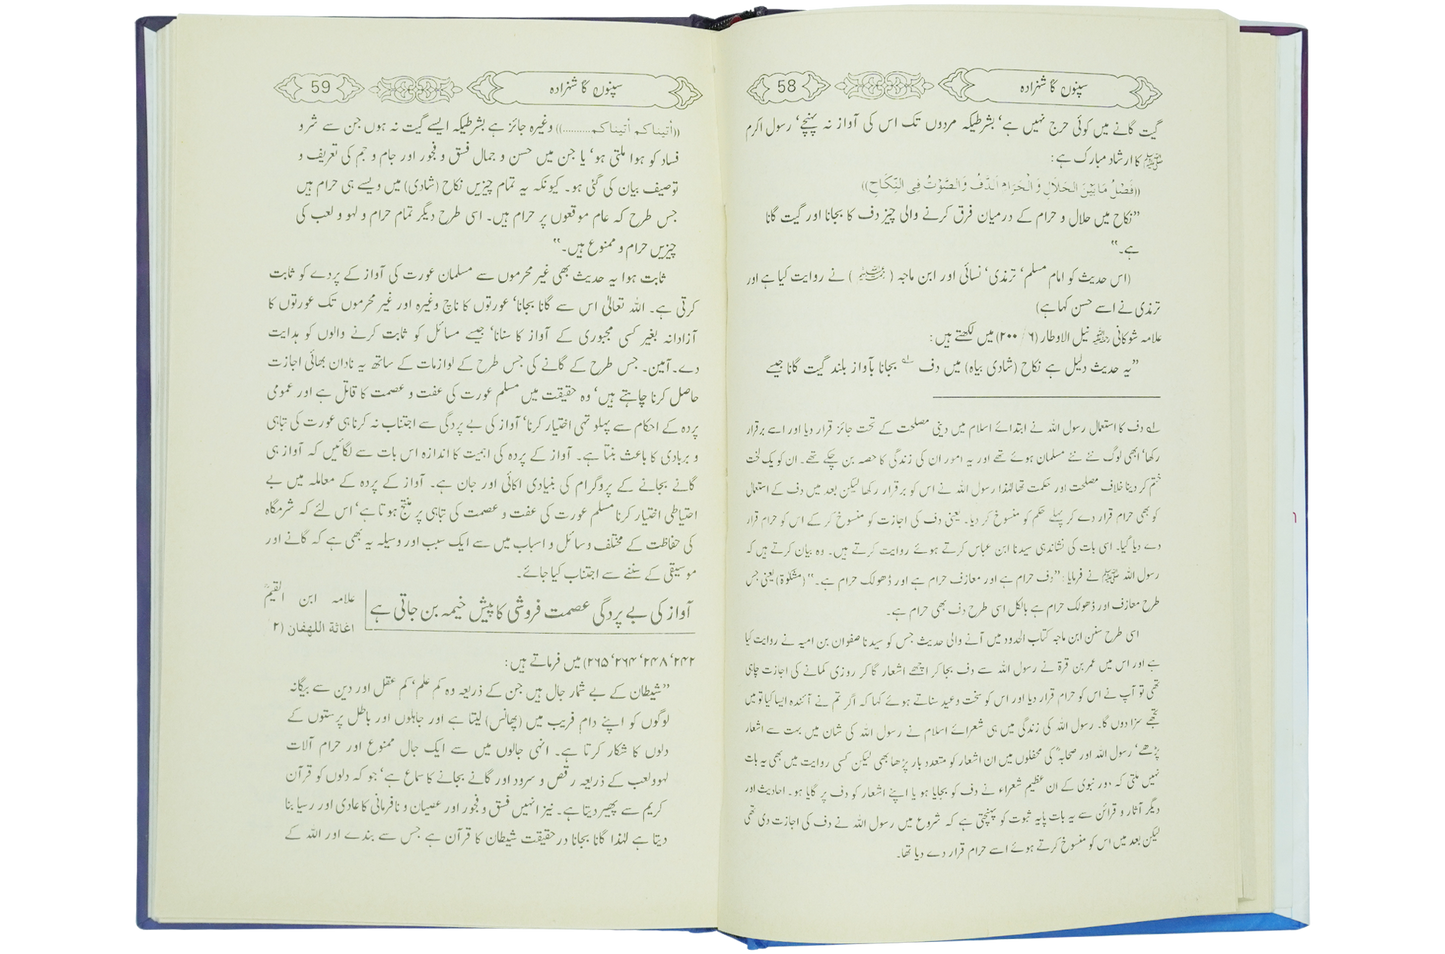 سپنوں کا شہزادہ
58
گیت گانے میں کوئی حرج نہیں ہے‘ بشرطیکہ مردوں تک اس کی آواز نہ پہنچے‘ رسول اکرم
ﷺ کا ارشاد مبارک ہے:
((فَصْلُ مَا بَيْنَ الْحَلَالِ وَ الْحَرَامِ الدُّفُ وَالصَّوْتُ فِي النِّكَاحِ))
”نکاح میں حلال و حرام کے درمیان فرق کرنے والی چیز دف کا بجانا اور گیت گانا
ہے۔“
(اس حدیث کو امام مسلم‘ ترمذی‘ نسائی اور ابن ماجہ ( ) نے روایت کیا ہے اور
ترمذی نے اسے حسن کہا ہے)
علامہ شوکانی نیل الاوطار (۶/ ۲۰۰) میں لکھتے ہیں:
”یہ حدیث دلیل ہے نکاح (شادی بیاہ) میں دف لے بجانا بآواز بلند گیت گانا جیسے
لے دف کا استعمال رسول اللہ نے ابتدائے اسلام میں دینی مصلحت کے تحت جائز قرار دیا اور اسے برقرار
رکھا‘ ابھی لوگ نئے نئے مسلمان ہوئے تھے اور یہ امور ان کی زندگی کا حصہ بن چکے تھے۔ ان کو یک لخت
ختم کر دینا خلاف مصلحت اور حکمت تھا لہٰذا رسول اللہ نے اس کو برقرار رکھا لیکن بعد میں دف کے استعمال
کو بھی حرام قرار دے کر پہلے حکم کو منسوخ کر دیا۔ یعنی دف کی اجازت کو منسوخ کر کے اس کو حرام قرار
دے دیا گیا۔ اسی بات کی نشاندہی سیدنا ابن عباس کرتے ہوئے روایت کرتے ہیں۔ وہ بیان کرتے ہیں کہ
رسول اللہ ﷺ نے فرمایا: ”دف حرام ہے اور معازف حرام ہے اور ڈھولک حرام ہے۔“ (مشکوٰۃ) یعنی جس
طرح معازف اور ڈھولک حرام ہے بالکل اسی طرح دف بھی حرام ہے۔
اسی طرح سنن ابن ماجہ کتاب الحدود میں آنے والی حدیث جس کو سیدنا صفوان بن امیہ نے روایت کیا
ہے اور اس میں عمر بن قرۃ نے رسول اللہ سے دف بجا کر اچھے اشعار گا کر روزی کمانے کی اجازت چاہی
تھی تو آپ نے اس کو حرام قرار دیا اور اس کو سخت وعید سناتے ہوئے کہا کہ اگر تم نے آئندہ ایسا کیا تو میں
تجھے سزا دوں گا۔ رسول اللہ کی زندگی میں ہی شعرائے اسلام نے رسول اللہ کی شان میں بہت سے اشعار
پڑھے‘ رسول اللہ اور صحابہؓ کی محفلوں میں ان اشعار کو متعدد بار پڑھا بھی لیکن کسی روایت میں بھی یہ بات
نہیں ملتی کہ دور نبوی کے ان عظیم شعراء نے دف کو بجایا ہو یا اپنے اشعار کو دف پر گایا ہو۔ احادیث اور
دیگر آثار و قرائن سے یہ بات پایہ ثبوت کو پہنچتی ہے کہ شروع میں رسول اللہ نے دف کی اجازت دی تھی
لیکن بعد میں اس کو منسوخ کرتے ہوئے اسے حرام قرار دے دیا تھا۔
سپنوں کا شہزادہ
59
((اتيناكم اتيناكم..........)) وغیرہ جائز ہے بشرطیکہ ایسے گیت نہ ہوں جن سے شر و
فساد کو ہوا ملتی ہو‘ یا جن میں حسن و جمال فسق و فجور اور جام و جم کی تعریف و
توصیف بیان کی گئی ہو۔ کیونکہ یہ تمام چیزیں نکاح (شادی) میں ویسے ہی حرام ہیں
جس طرح کہ عام موقعوں پر حرام ہیں۔ اسی طرح دیگر تمام حرام و لہو و لعب کی
چیزیں حرام و ممنوع ہیں۔“
ثابت ہوا یہ حدیث بھی غیر محرموں سے مسلمان عورت کی آواز کے پردے کو ثابت
کرتی ہے۔ اللہ تعالیٰ اس سے گانا بجانا‘ عورتوں کا ناچ وغیرہ اور غیر محرموں تک عورتوں کا
آزادانہ بغیر کسی مجبوری کے آواز کا سنانا‘ جیسے مسائل کو ثابت کرنے والوں کو ہدایت
دے۔ آمین۔ جس طرح کے گانے کی جس طرح کے لوازمات کے ساتھ یہ نادان بھائی اجازت
حاصل کرنا چاہتے ہیں‘ وہ حقیقت میں مسلم عورت کی عفت و عصمت کا قاتل ہے اور عمومی
پردہ کے احکام سے پہلو تہی اختیار کرنا‘ آواز کی بے پردگی سے اجتناب نہ کرنا ہی عورت کی تباہی
و بربادی کا باعث بنتا ہے۔ آواز کے پردہ کی اہمیت کا اندازہ اس بات سے لگائیں کہ آواز ہی
گانے بجانے کے پروگرام کی بنیادی اکائی اور جان ہے۔ آواز کے پردہ کے معاملہ میں بے
احتیاطی اختیار کرنا مسلم عورت کی عفت و عصمت کی تباہی پر منتج ہوتا ہے‘ اس لئے کہ شرمگاہ
کی حفاظت کے مختلف وسائل و اسباب میں سے ایک سبب اور وسیلہ یہ بھی ہے کہ گانے اور
موسیقی کے سننے سے اجتناب کیا جائے۔
آواز کی بے پردگی عصمت فروشی کا پیش خیمہ بن جاتی ہے
علامہ ابن القیمؒ
اغاثة اللهفان (۲
۲۴۲‘ ۲۴۸‘ ۲۶۴‘ ۲۶۵) میں فرماتے ہیں:
”شیطان کے بے شمار جال ہیں جن کے ذریعہ وہ کم علم‘ کم عقل اور دین سے بیگانہ
لوگوں کو اپنے دام فریب میں (پھانس) لیتا ہے اور جاہلوں اور باطل پرستوں کے
دلوں کا شکار کرتا ہے۔ انہی جالوں میں سے ایک جال ممنوع اور حرام آلات
لہو و لعب کے ذریعہ رقص و سرود اور گانے بجانے کا سماع ہے‘ جو کہ دلوں کو قرآن
کریم سے پھیر دیتا ہے۔ نیز انہیں فسق و فجور اور عصیان و نافرمانی کا عادی اور رسیا بنا
دیتا ہے لہٰذا گانا بجانا در حقیقت شیطان کا قرآن ہے جس سے بندے اور اللہ کے